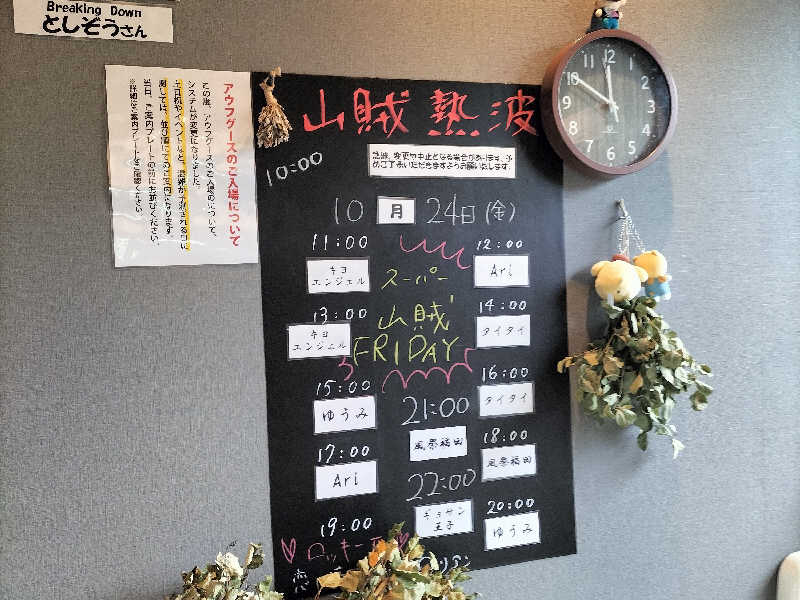 Breaking Down
としぞうさん
アウフグースのご入場について
この度、アウフグースのご入場について、
システムが変更になりました。
土日祝やイベントなど、混雑が予想される日に
関しては、並び順にてのご案内になります。
当日、ご案内プレートの前にお並びください。
※詳細はご案内プレートをご確認ください。
山賊 熱波
10:00
急遽、変更や中止となる場合があります。予
めご了承いただきますようお願い致します。
10 月 24日(金)
11:00
キヨ
エンジェル
12:00
Ari
スーパー
山賊
FRIDAY
13:00
キヨ
エンジェル
14:00
タイタイ
15:00
ゆうみ
16:00
タイタイ
17:00
Ari
18:00
風祭福田
19:00
ロッキー
20:00
ゆうみ
21:00
風祭福田
22:00
ギョサン
王子
12
1
2
3
4
5
6
7
8
9
10
11